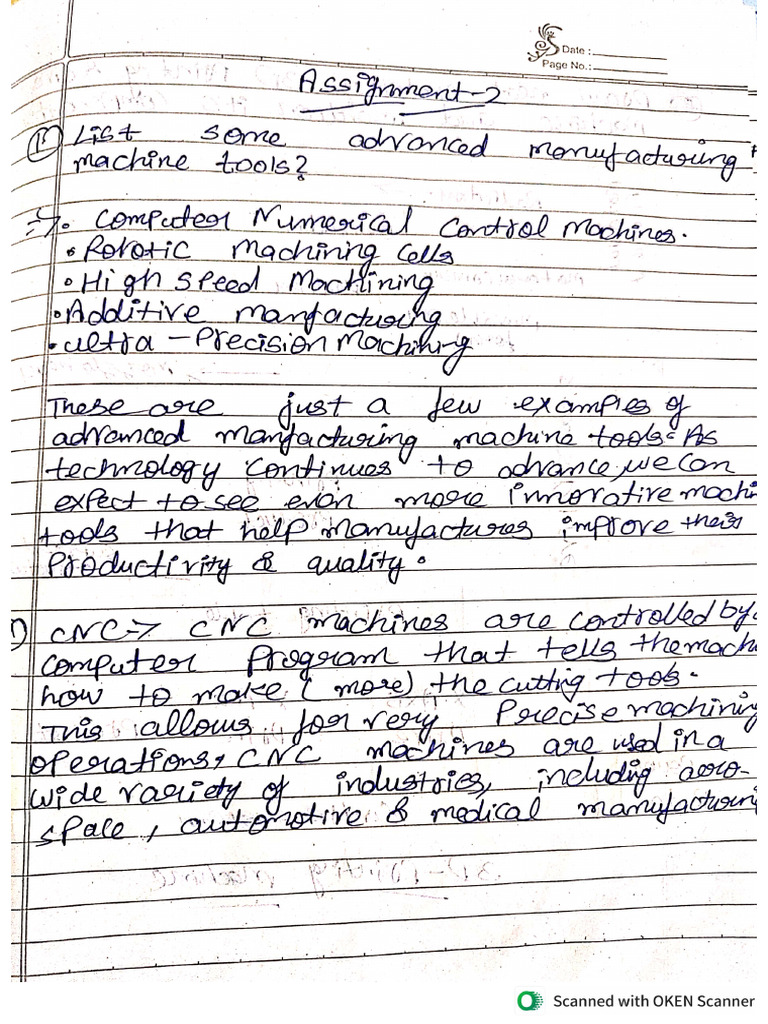 Date :
Page No.:
Assignment-2
1) List some advanced manufacturing
machine tools?
=> • Computer Numerical Control Machines.
• Robotic Machining Cells
• High speed Machining
• Additive manfacturing
• ultra - Precision Machining
These are just a few examples of
advanced manfacturing machine tools. As
technology continues to advance, we can
expect to see even more innovative machi
tools that help manufactures improve their
Productivity & quality.
1) CNC -> CNC machines are controlled by a
computer Program that tells the mach
how to make (more) the cutting tools.
This allows for very Precise machining
operations, CNC machines are used in a
wide variety of industries, including aero-
space, automotive & medical manufacturin
Scanned with OKEN Scanner